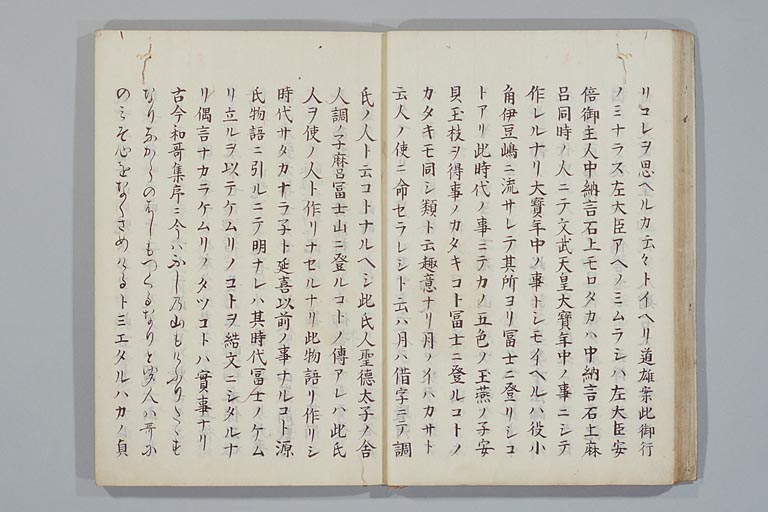 リコレヲ思ヘルカ云々トイヘリ道雄案此御行
ノミナラス左大臣アヘノミムラシハ左大臣安
倍御主人中納言石上モロタカハ中納言石上麻
呂同時ノ人ニテ文武天皇大寶年中ノ事ニシテ
作レルナリ大寶年中ノ事トシモイヘルハ役小
角伊豆嶋ニ流サレテ其所ヨリ冨士ニ登リシコ
トアリ此時代ノ事ニテカノ五色ノ玉燕ノ子安
貝玉枝ヲ得事ノカタキコト冨士ニ登ルコトノ
カタキモ同シ類ト云趣意ナリ月ノイハカサト
云人ノ使ニ命セラレシト云ハ月ハ借字ニテ調
氏ノ人ト云コトナルヘシ此氏人聖德太子ノ舎
人調ノ子麻呂冨士山ニ登ルコトノ傳アレハ此氏
人ヲ使ノ人ト作リナセルナリ此物語リ作リシ
時代サタカナラ子ト延喜以前ノ事ナルコト源
氏物語ニ引ルニテ明ナレハ其時代冨士ノケム
リ立ルヲ以テケムリノコトヲ結文ニシタルナ
リ偶言ナカラケムリノタツコトハ實事ナリ
古今和哥集序ニ今ハふしの山もけふりたゝす
なりなからのはしもつくるなりと聞人ハ哥に
のミそ心をなくさめけるトミエタルハカノ貞